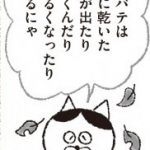 バテは
に乾いた
が出たり
くんだり
るくなったり
るにゃ